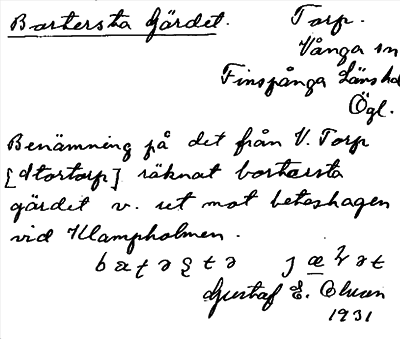 Bortersta Gärdet. Torp.
Vånga sn
Finspånga Länshd
Ögl.
Benämning på det från V. Torp
[Stortorp] räknat bortersta
gärdet v. ut mot beteshagen
vid Klampholmen.
Gustaf E. Olsson
1931